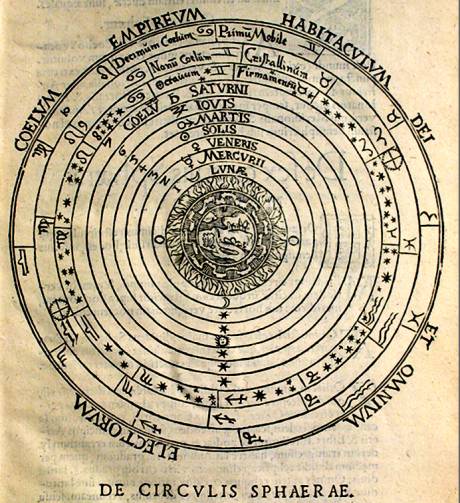 COELVM EMPIREVM HABITACVLVM DEI ET OMNIVM ELECTORVM
Decimum Coelum Primu Mobile
Nonu Coelum Cristallinum
Octauum Firmamentu
COELV SATVRNI
IOVIS
MARTIS
SOLIS
VENERIS
MERCVRII
LVNÆ
DE CIRCVLIS SPHAERAE.